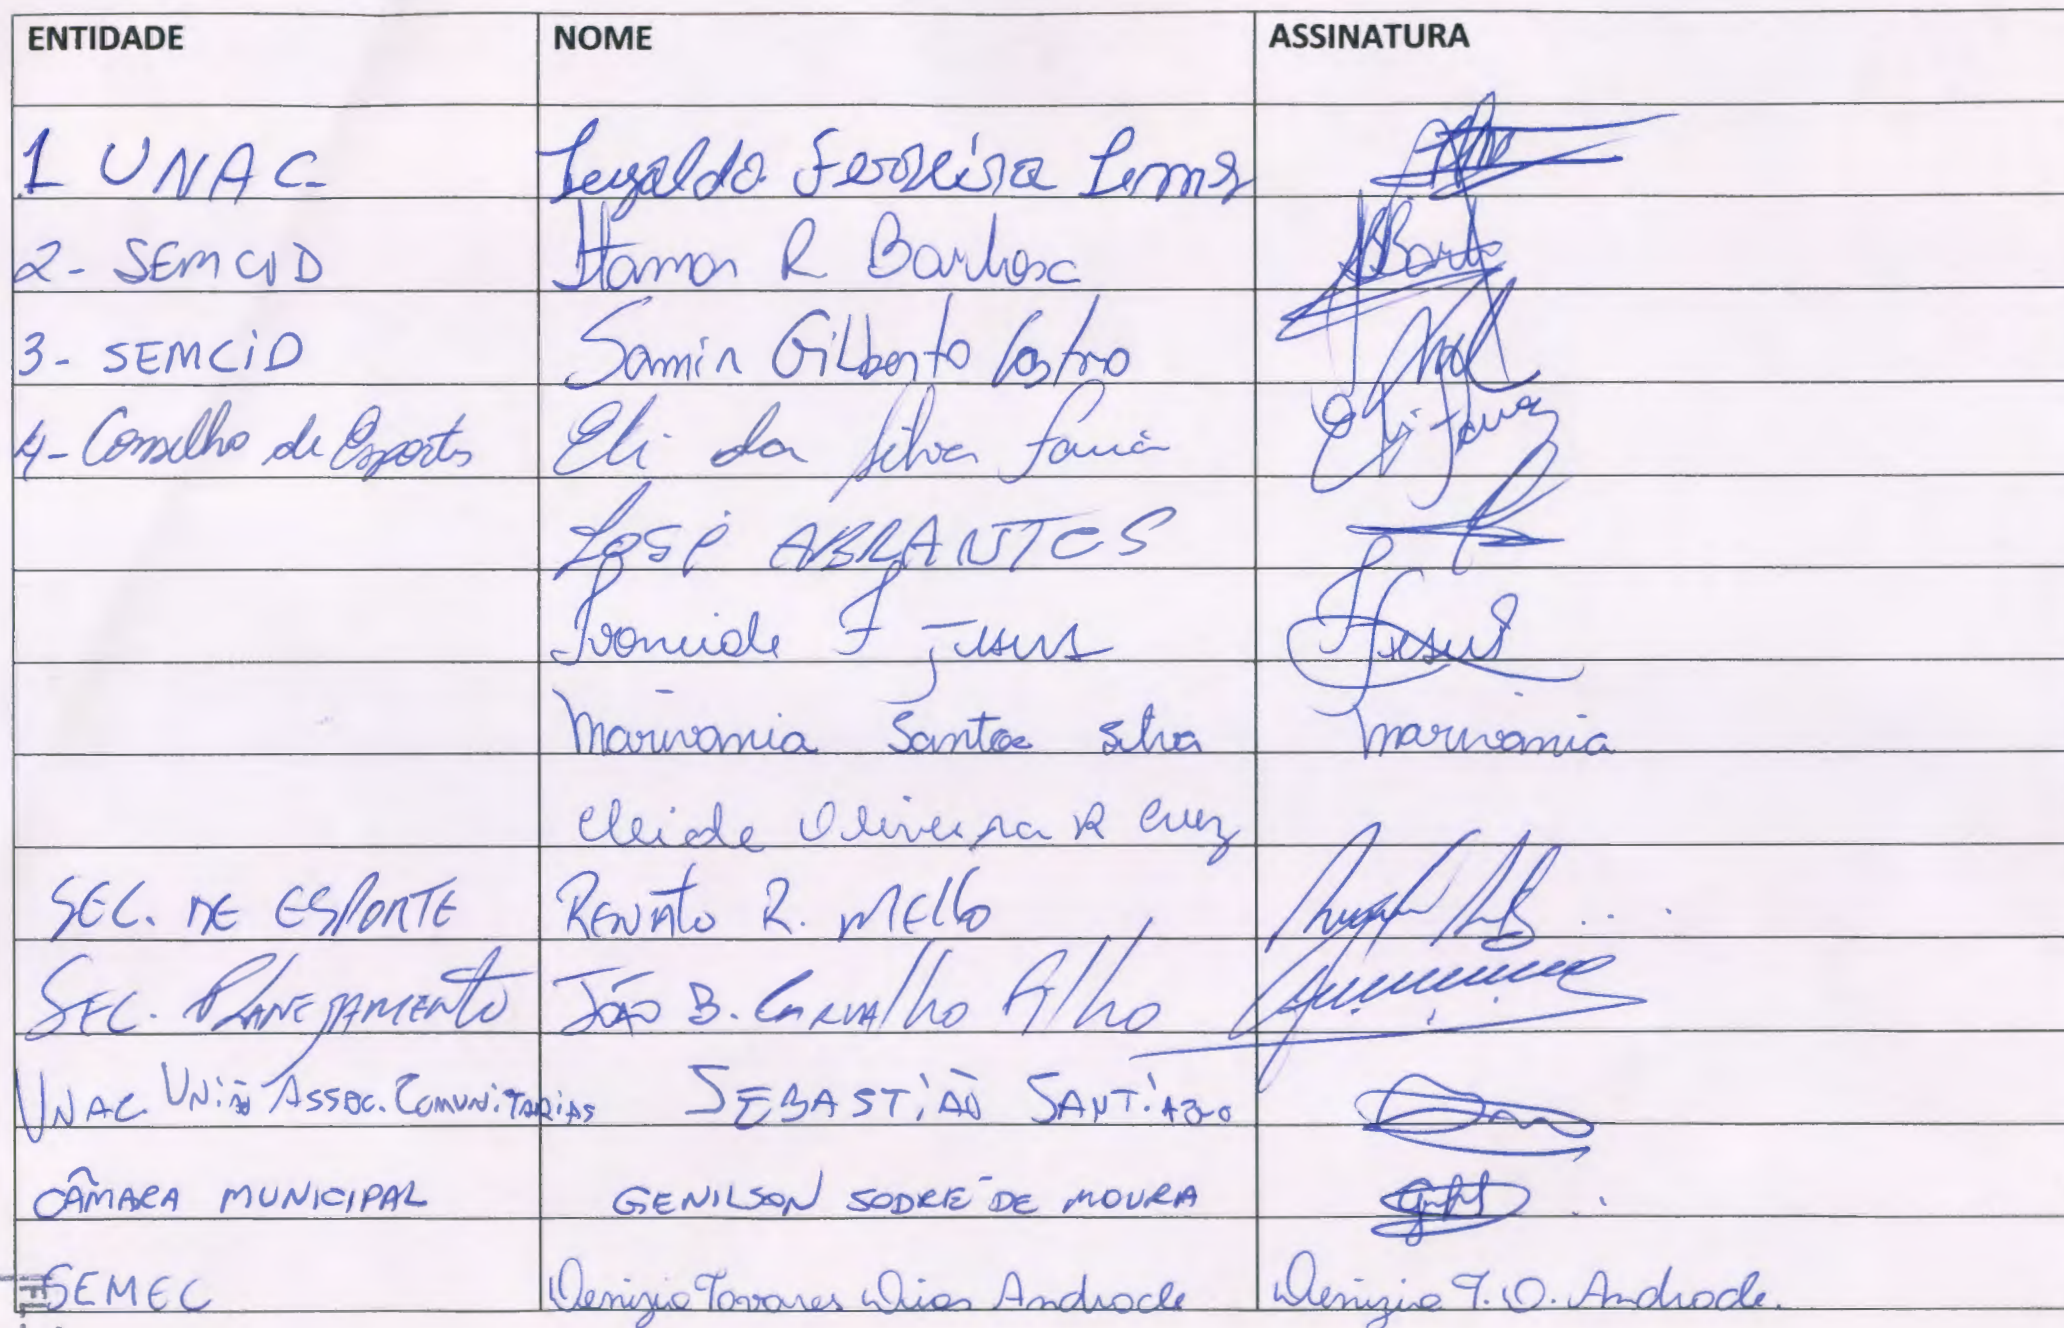 ENTIDADE NOME ASSINATURA
1 UNAC Ferreira Lemos
2- SEMCID Itamar R Barbosa
3- SEMCiD Samir Gilberto Castro
4- Conselho de Esportes Eli da Silva Faria
José ABRANTES
Ivoneide F Jesus
Marivania Santos Silva Marivania
Cleide Oliveira R Cruz
SEC. DE ESPORTE RENATO R. MELLO
SEC. PLANEJAMENTO João B. CARVALHO Filho
UNAC UNião Assoc. COMUNiTARiAS SEBASTiÃO SANTiAGO
CÂMARA MUNICIPAL GENILSON SODRÉ DE MOURA
SEMEC Denizia Tavares Dias Andrade Denizia T. D. Andrade.